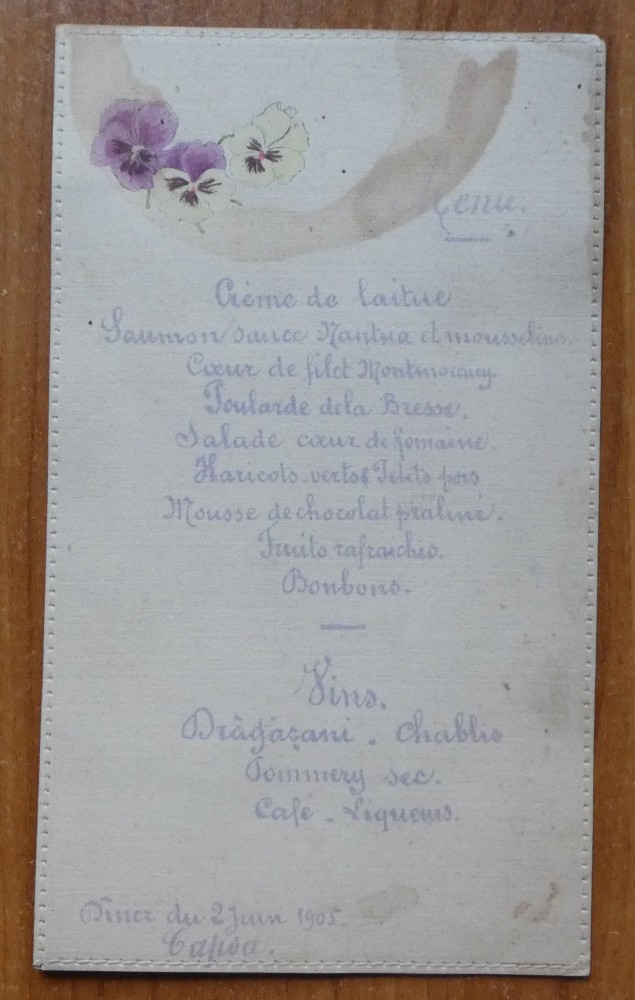 Menu.
Crème de laitue
Saumon sauce Nantua et mousseline.
Cœur de filet Montmorency.
Poularde de la Bresse.
Salade cœur de Romaine.
Haricots-verts & Petits pois
Mousse de chocolat praliné.
Fruits rafraichis.
Bonbons.
Vins.
Drăgăşani - Chablis
Pommery sec.
Café - Liqueurs.
Diner du 2 Juin 1905.
Capsa.